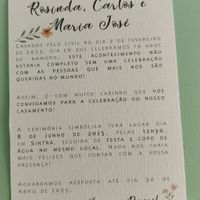 Rosinda, Carlos e
Maria José
Casados pelo civil no dia 7 de fevereiro
de 2025, dia em que celebramos 10 anos
de namoro, este acontecimento não
estaria completo sem uma celebração
com as pessoas que mais nos são
queridas no mundo!
Assim, é com muito carinho que vos
convidamos para a celebração do nosso
casamento:
A cerimónia simbólica terá lugar dia
8 de junho de 2025, pelas 12h30,
em Sintra, seguida de festa e copo de
água no mesmo local. Nada nos faria
mais felizes que contar com a vossa
presença!
Aguardamos resposta até dia 30 de
Abril de 2025.